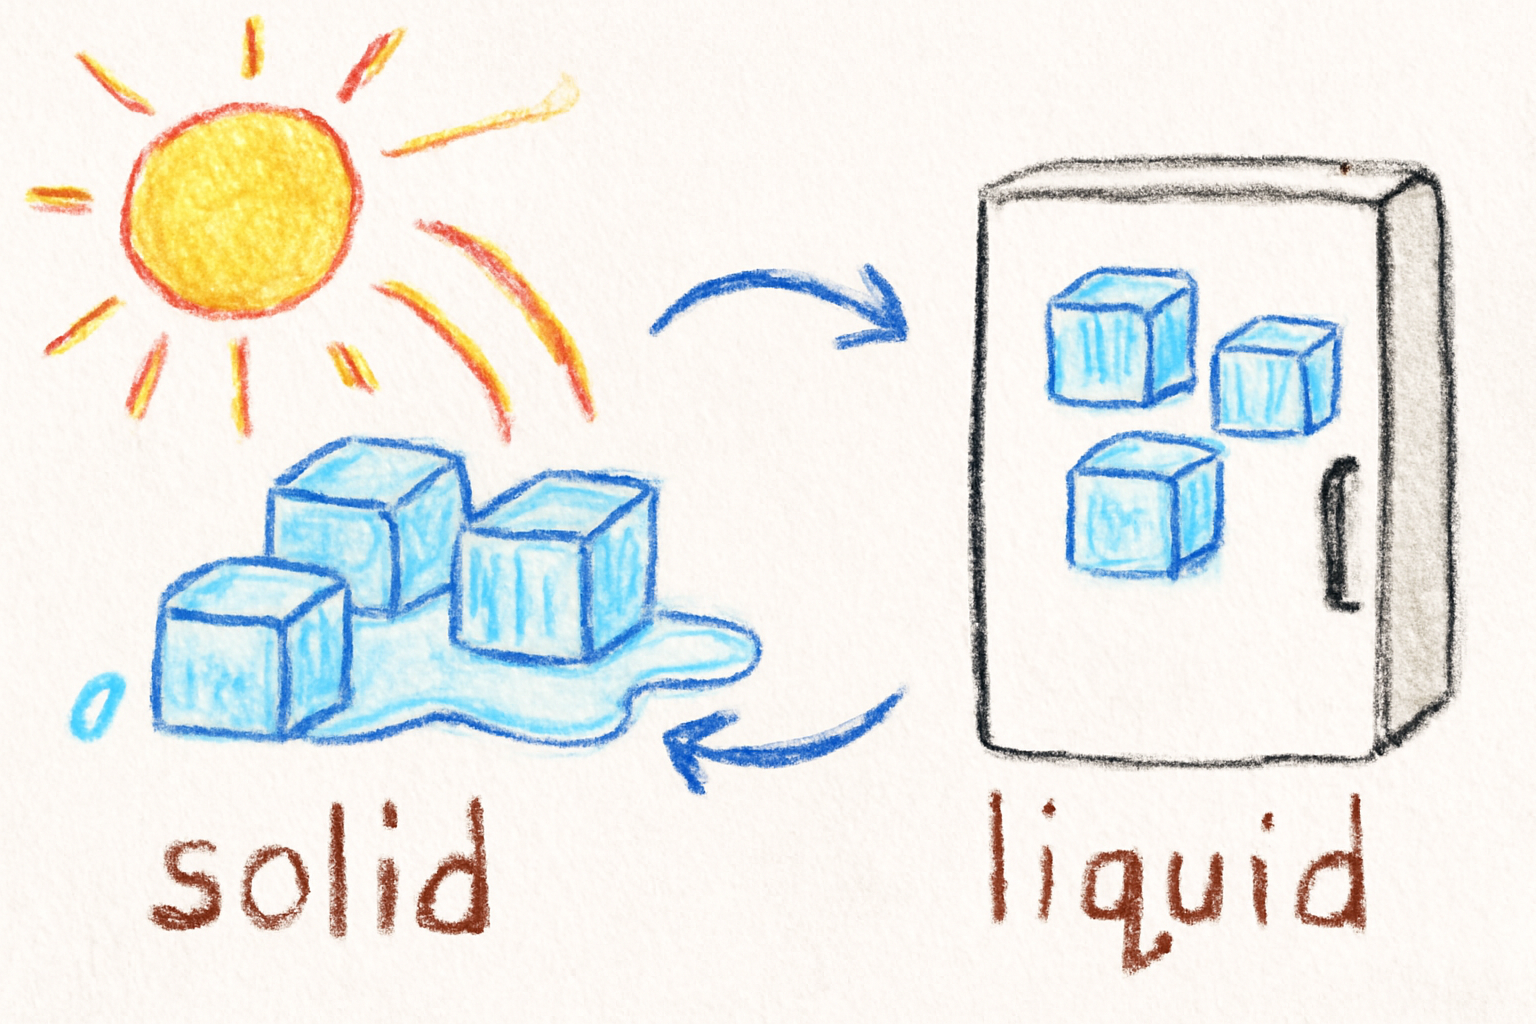 solid
liquid